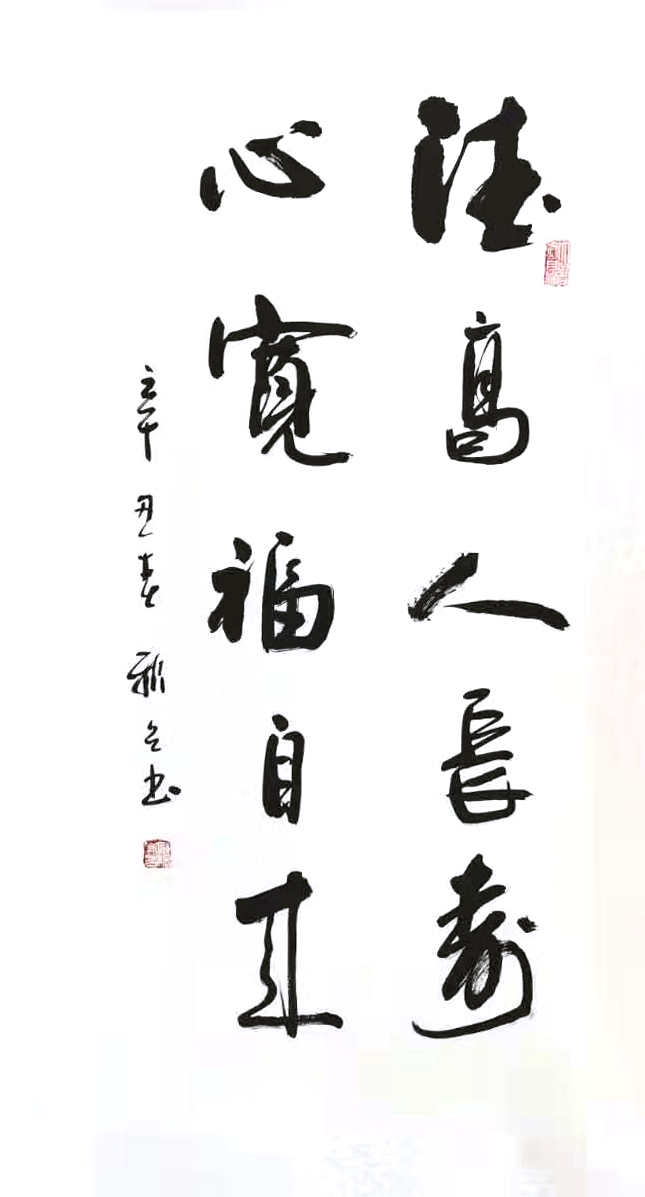 德高人長壽
心寬福自來
辛丑春 雅立书